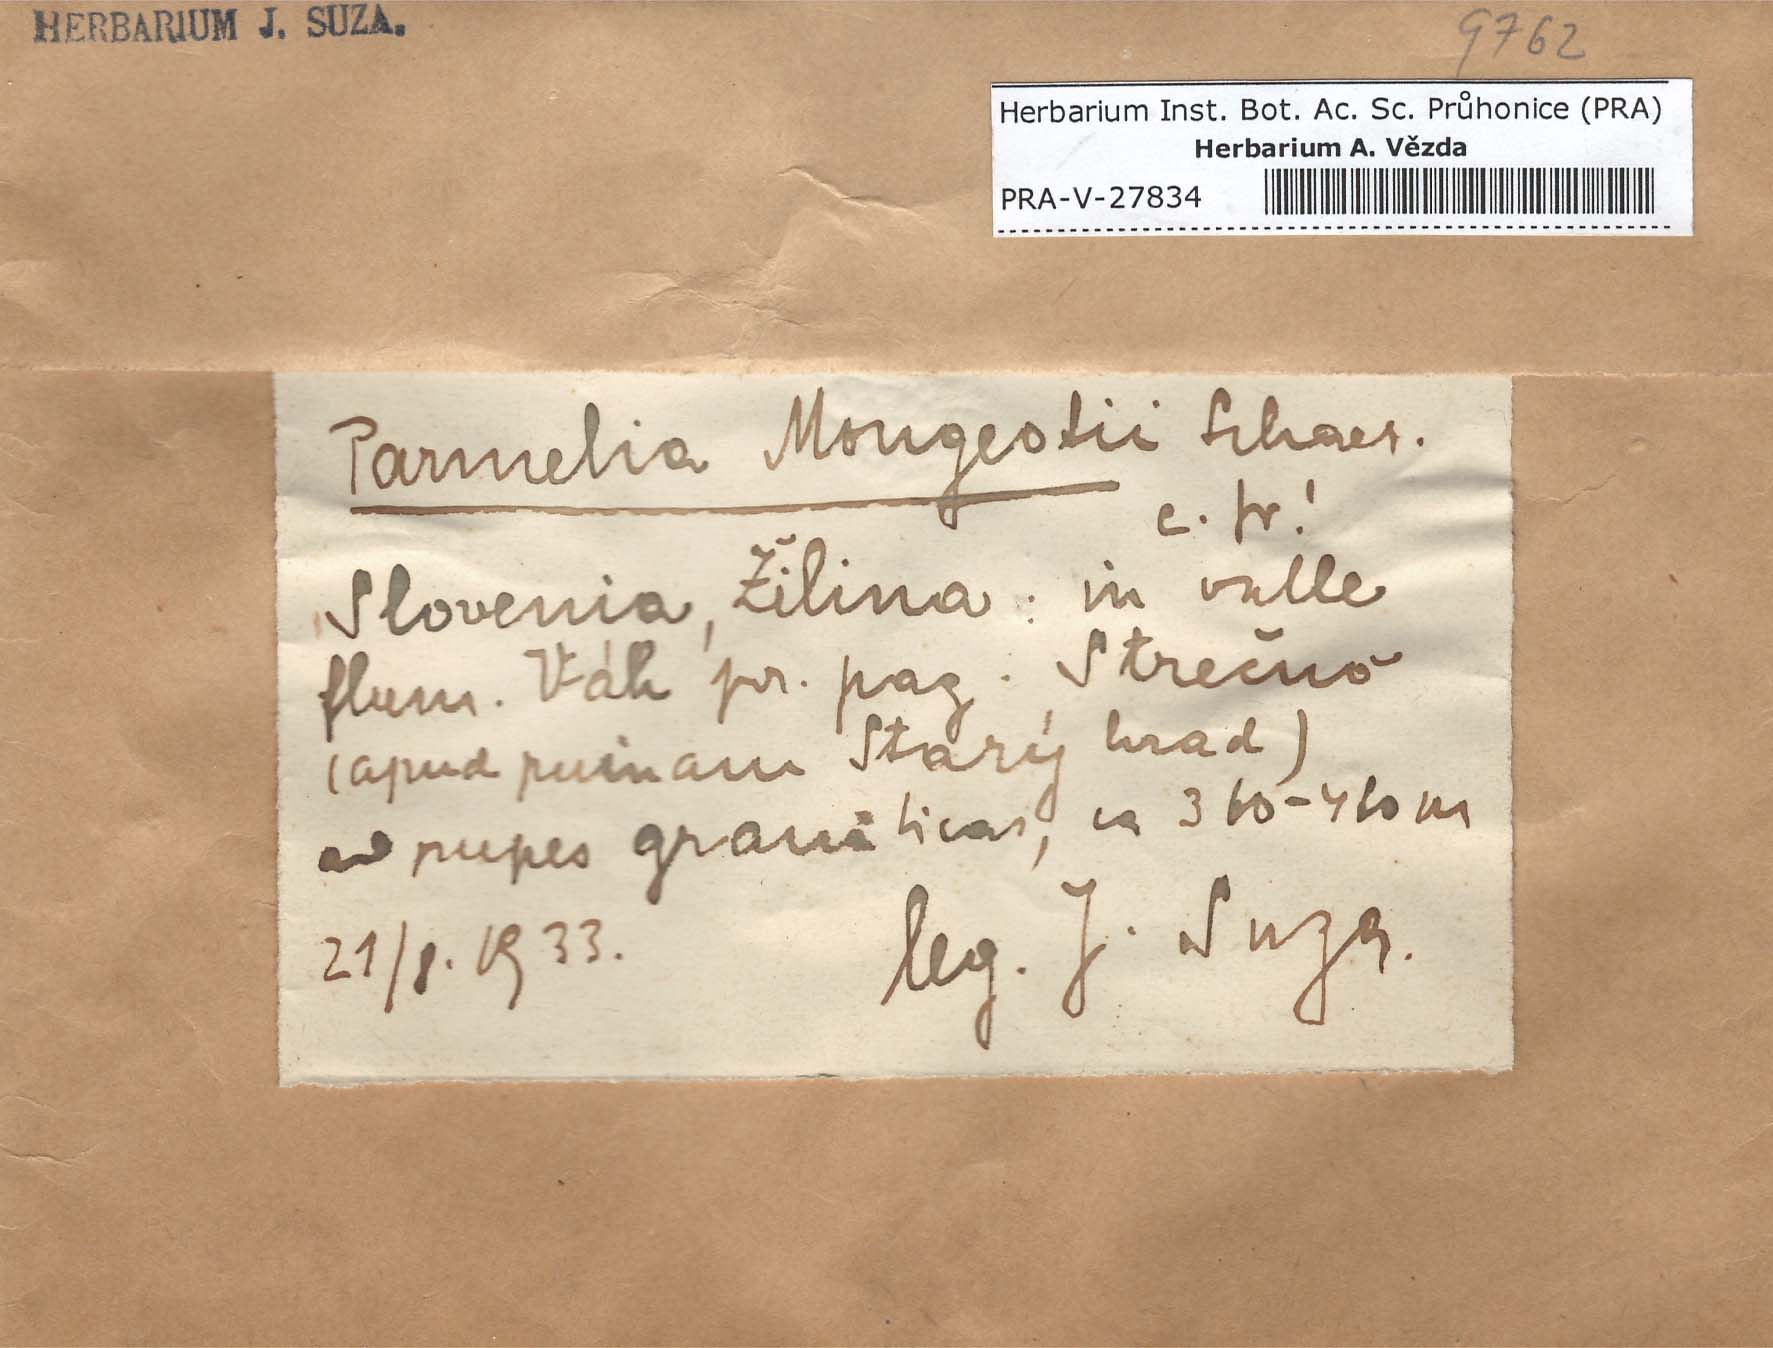 HERBARIUM J. SUZA.
9762
Herbarium Inst. Bot. Ac. Sc. Průhonice (PRA)
Herbarium A. Vězda
PRA-V-27834
Parmelia Mougeotii Schaer.
c. fr!
Slovenia, Žilina: in valle
flum. Váh pr. pag. Strečno
(apud ruinam Starý hrad)
ad rupes graniticas, ca 360-460 m
21/8. 1933. leg. J. Suza.